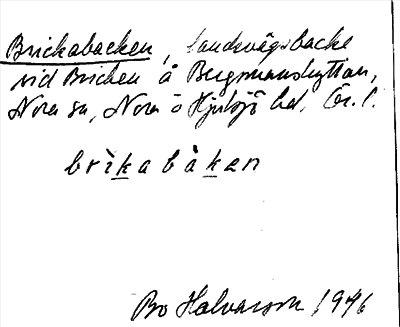 Brickabacken, landsvägsbacke
vid Bricken å Bergsmanshyttan,
Nora sn, Nora o Hjulsjö hd. Ör. l.
brìkabàken
Bo Halvarson 1946